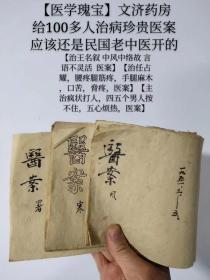 【医学瑰宝】文济药房
给100多人治病珍贵医案
应该还是民国老中医开的
【治王名叙 中风中络故 言
语不灵活 医案】【治任占
耀，腰疼腿筋疼，手腿麻木
，口苦，脊疼，医案】【主
治疯状打人，四五个男人按
不住，五心烦热，医案】
醫案
醫案
醫案 风
一九五一、